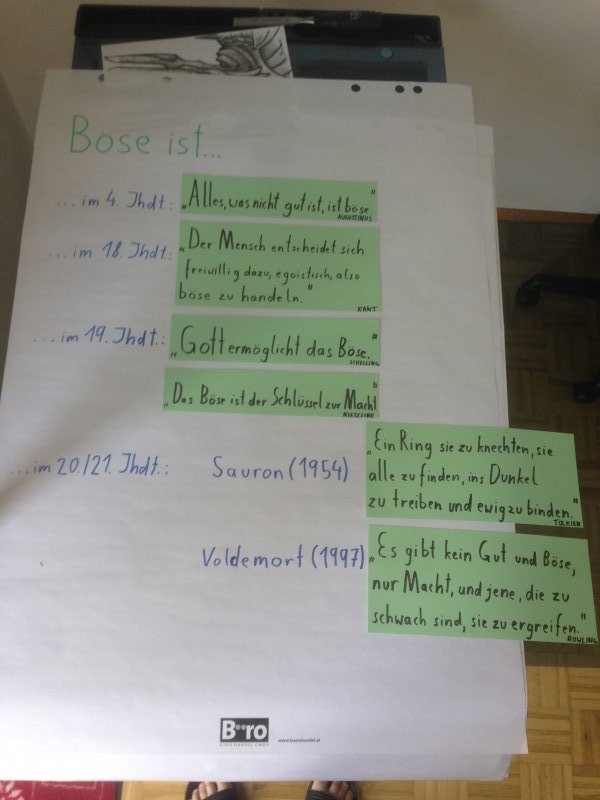 Böse ist...
...im 4. Jhdt.:
„Alles, was nicht gut ist, ist böse."
AUGUSTINUS
...im 18. Jhdt.:
„Der Mensch entscheidet sich
freiwillig dazu, egoistisch, also
böse zu handeln."
KANT
...im 19. Jhdt.:
„Gott ermöglicht das Böse."
SCHELLING
„Das Böse ist der Schlüssel zur Macht"
NIETZSCHE
...im 20./21. Jhdt.:
Sauron (1954)
„Ein Ring sie zu knechten, sie
alle zu finden, ins Dunkel
zu treiben und ewig zu binden."
TOLKIEN
Voldemort (1997)
„Es gibt kein Gut und Böse,
nur Macht, und jene, die zu
schwach sind, sie zu ergreifen."
ROWLING
Büro
BÜRO HANDEL GMBH
www.buerohandel.at